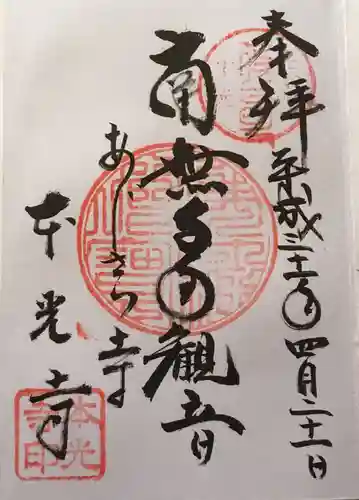 奉拝
平成三十一年四月二十一日
南無子育観音
あじさい寺
本光寺
本光
寺印